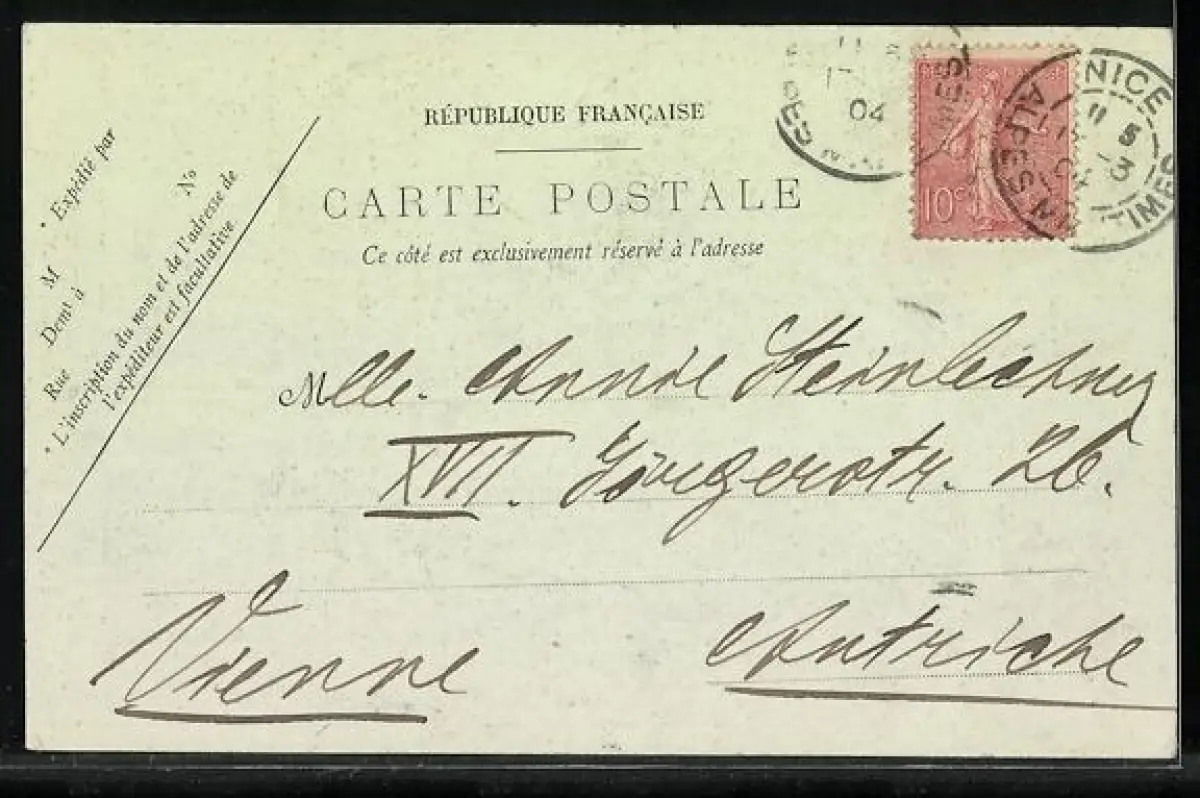 RÉPUBLIQUE FRANÇAISE
CARTE POSTALE
Ce côté est exclusivement réservé à l'adresse
* Expédié par
M
Demt à
Rue No
* L'inscription du nom et de l'adresse de
l'expéditeur est facultative
10c
04
NICE
ALPES MARITIMES
11 5
-3
04
Mlle. Annie
XVII. Jörgerstr. 26.
Vienne Autriche